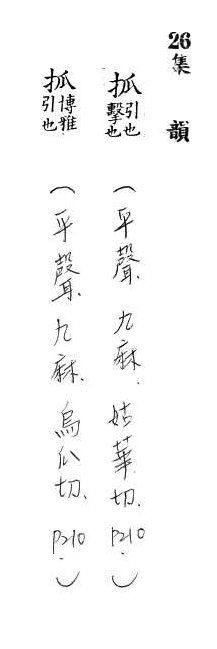 26 集 韻
㧓 引也擊也 (平聲、九麻、姑華切、P210.)
㧓 博雅引也 (平聲、九麻、烏瓜切、P210.)